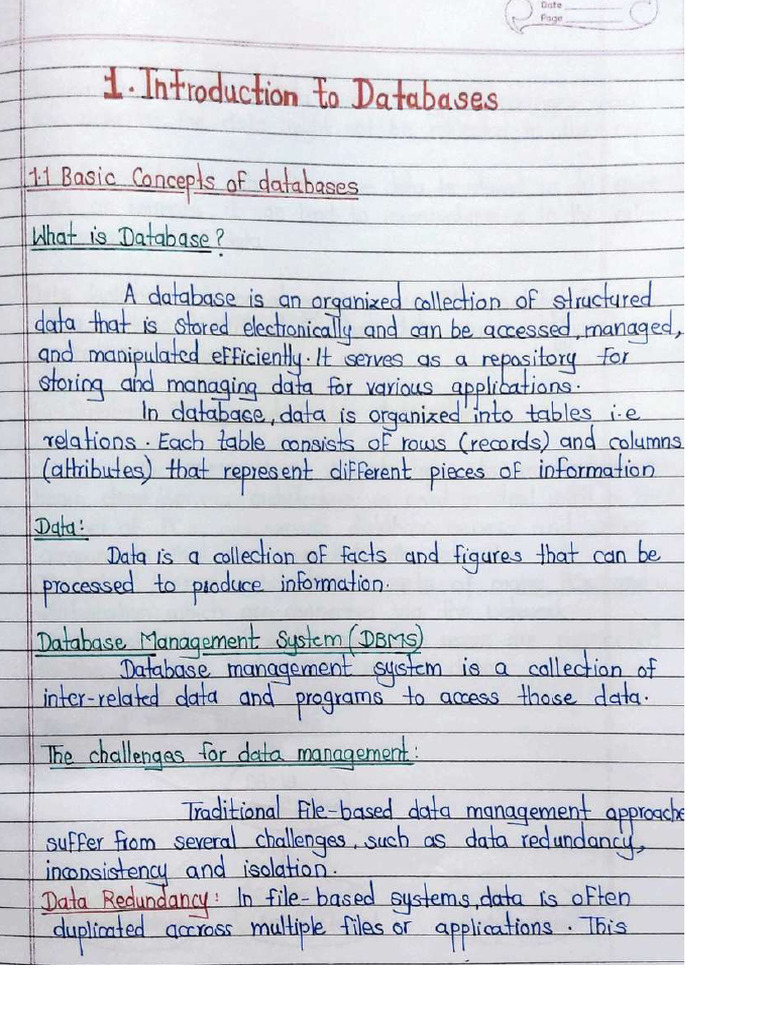 Date
Page
1. Introduction to Databases
1.1 Basic Concepts of databases
What is Database?
A database is an organized collection of structured
data that is stored electronically and can be accessed, managed,
and manipulated efficiently. It serves as a repository for
storing and managing data for various applications.
In database, data is organized into tables i.e
relations. Each table consists of rows (records) and columns
(attributes) that represent different pieces of information
Data:
Data is a collection of facts and figures that can be
processed to produce information.
Database Management System (DBMS)
Database management system is a collection of
inter-related data and programs to access those data.
The challenges for data management:
Traditional file-based data management approache
suffer from several challenges, such as data redundancy,
inconsistency and isolation.
Data Redundancy: In file-based systems, data is often
duplicated accross multiple files or applications. This